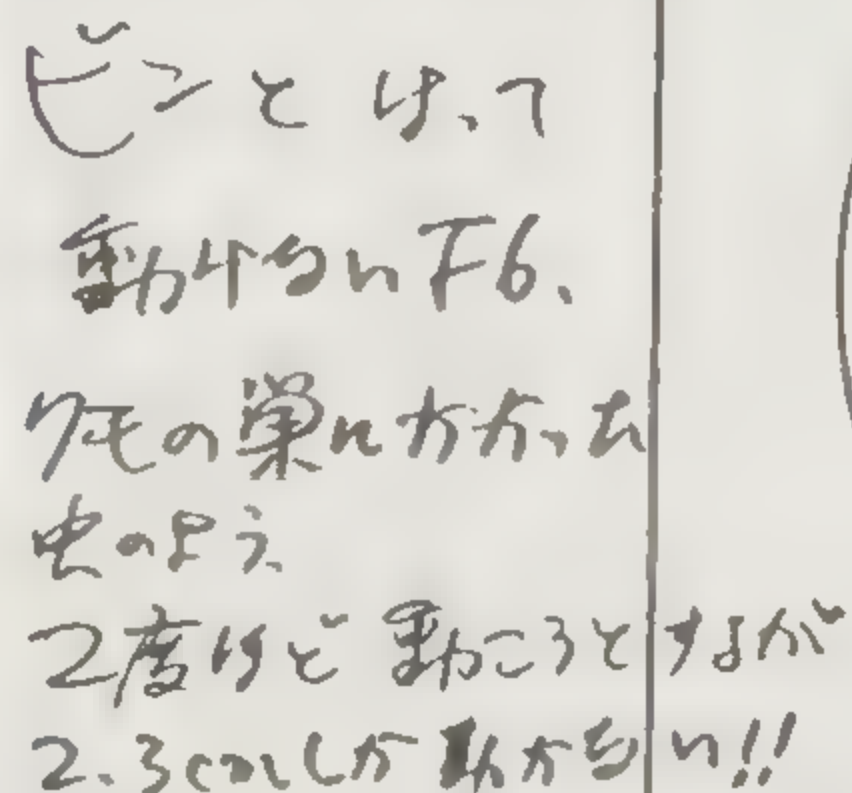 ピンとはって
動けないF6、
クモの巣にかかった
虫のよう、
2度ほど動こうとするが
2.3cmしか動かない!!